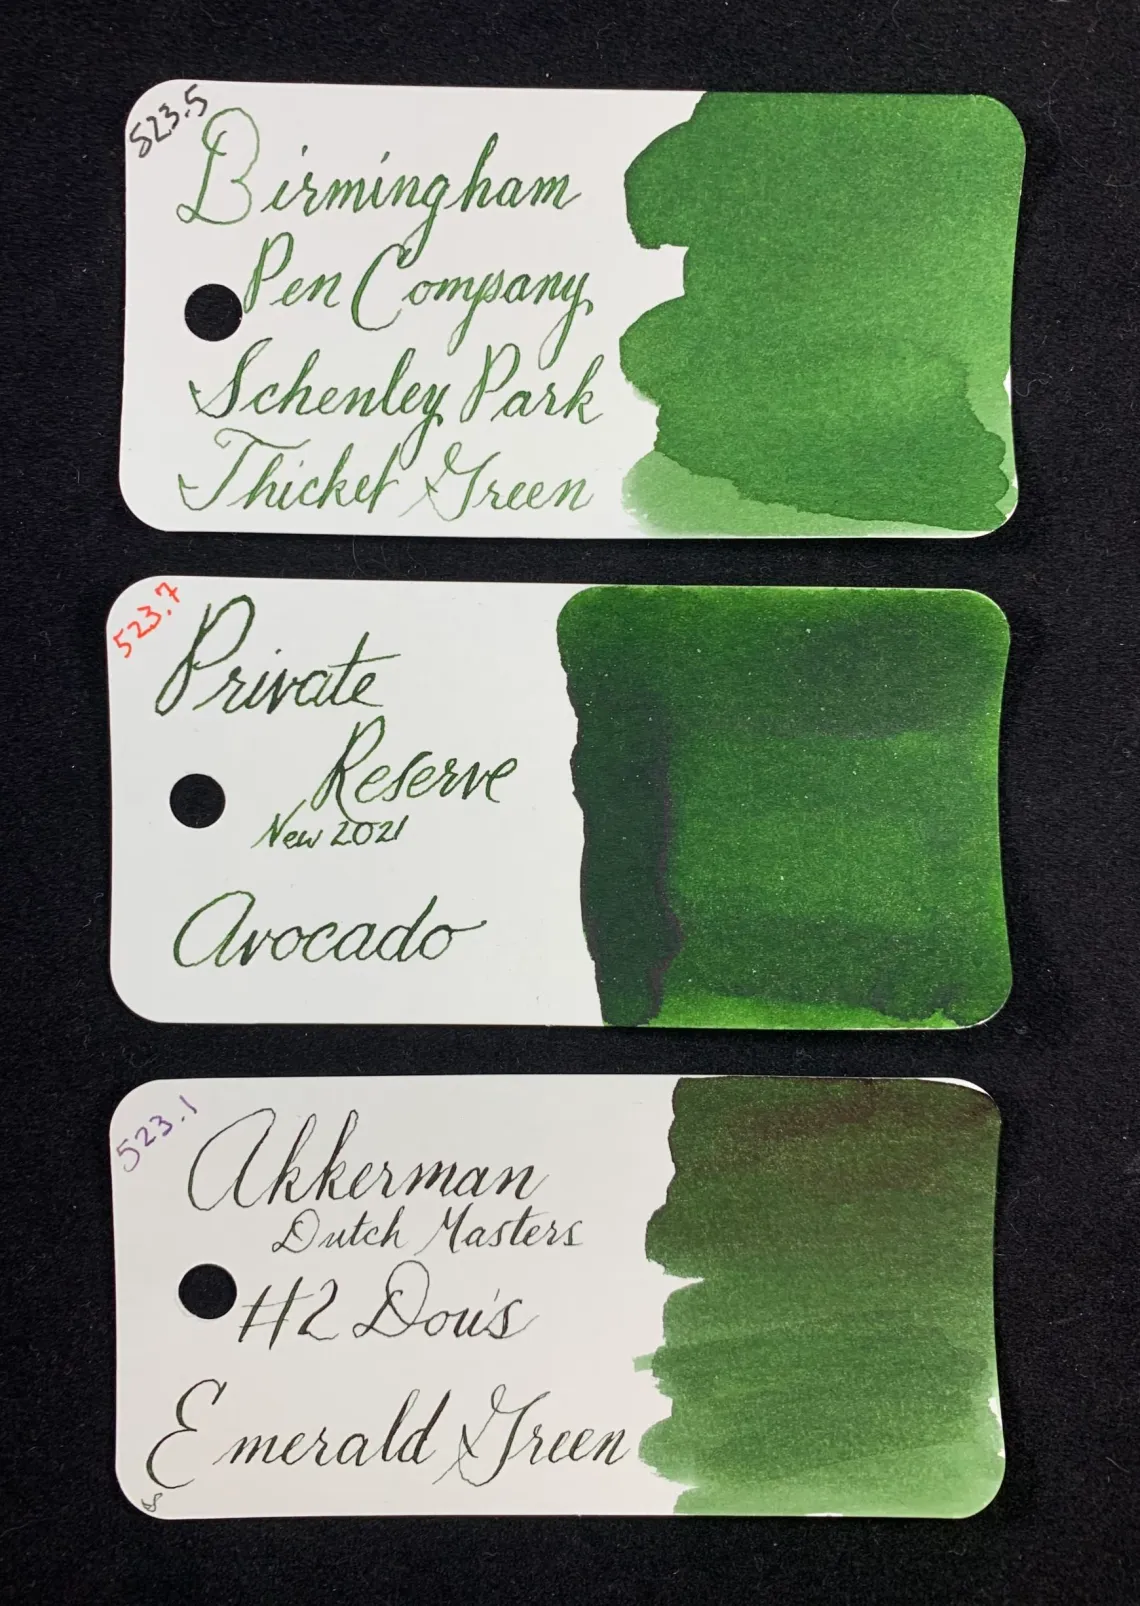 523.5
Birmingham
Pen Company
Schenley Park
Thicket Green
523.7
Private
Reserve
New 2021
Avocado
523.1
Akkerman
Dutch Masters
#2 Dou's
Emerald Green